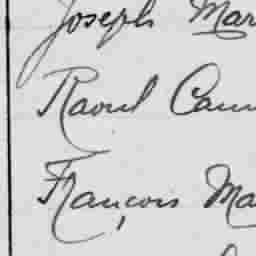 Joseph Mar
Raoul Cam
François Ma